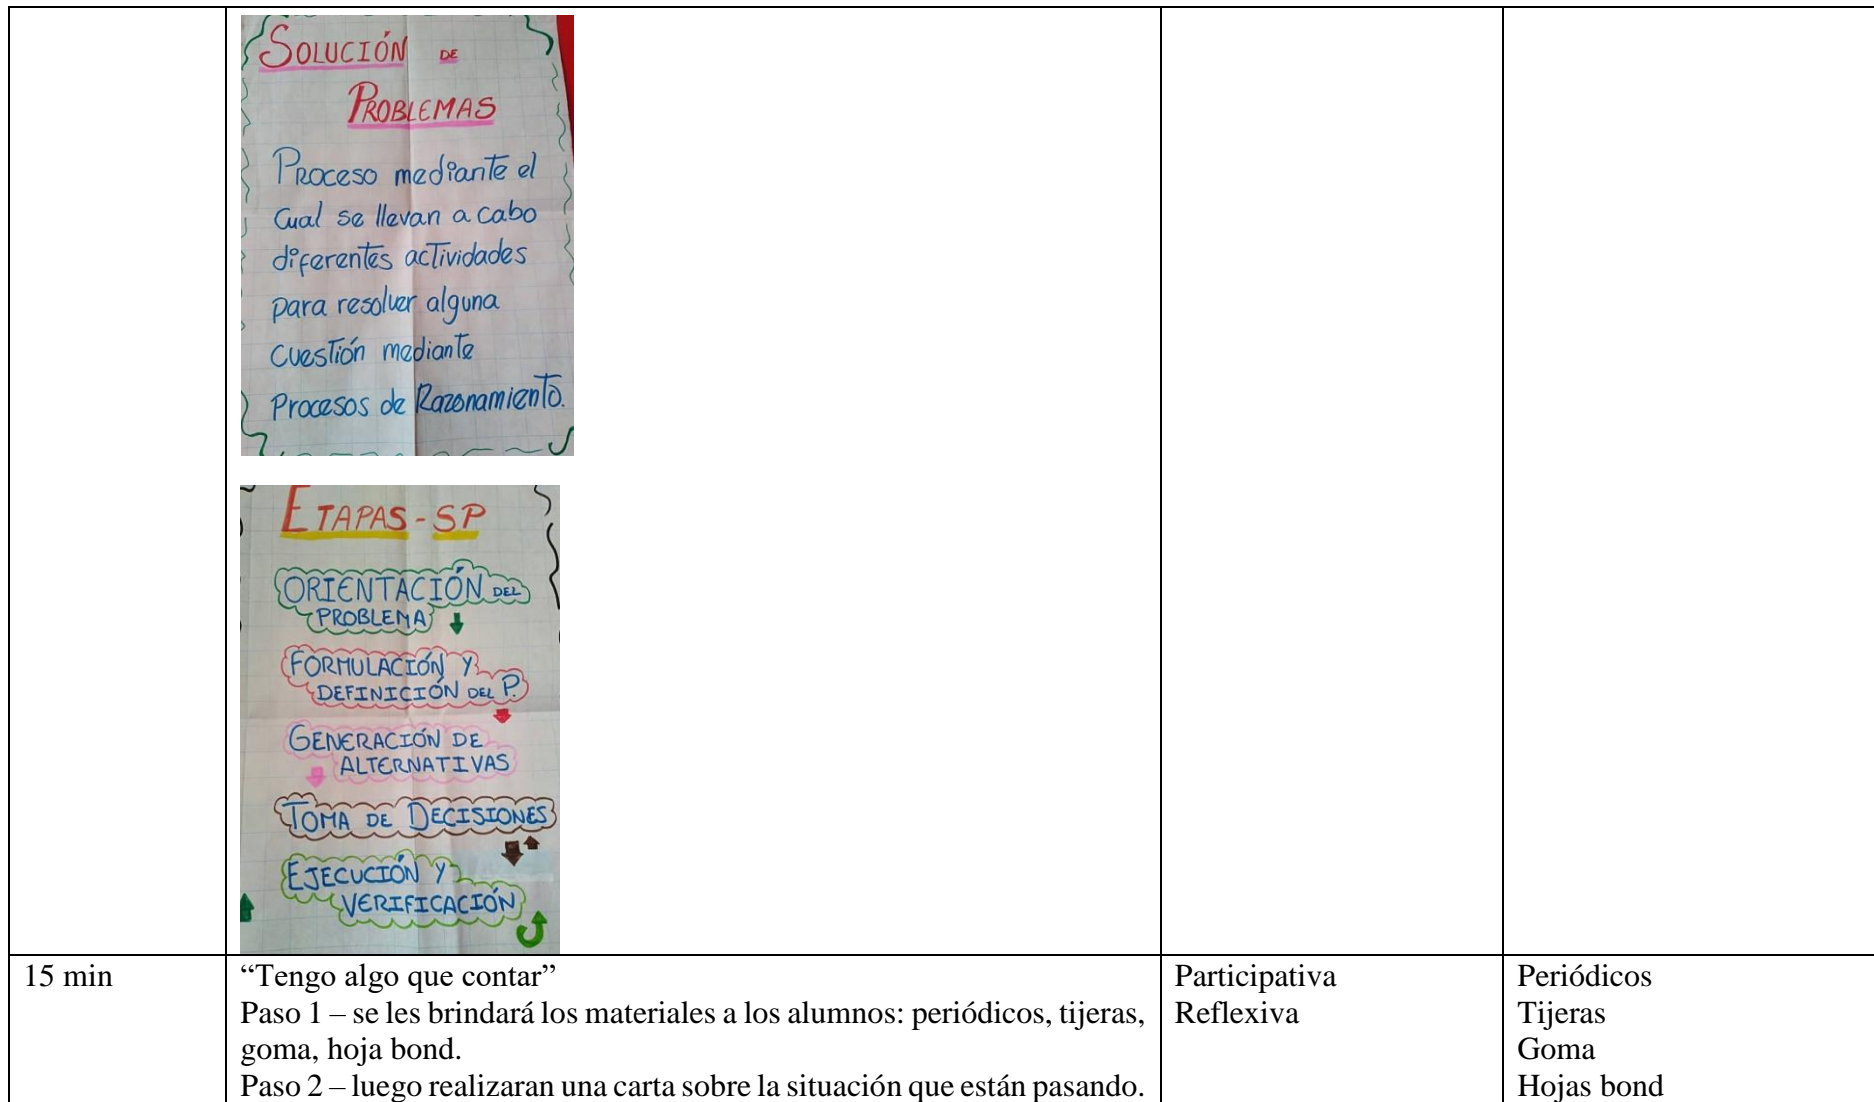 SOLUCIÓN DE
PROBLEMAS
Proceso mediante el
cual se llevan a cabo
diferentes actividades
para resolver alguna
cuestión mediante
Procesos de Razonamiento.
ETAPAS - SP
ORIENTACIÓN DEL
PROBLEMA
FORMULACIÓN Y
DEFINICIÓN DEL P.
GENERACIÓN DE
ALTERNATIVAS
TOMA DE DECISIONES
EJECUCIÓN Y
VERIFICACIÓN
15 min
“Tengo algo que contar”
Paso 1 – se les brindará los materiales a los alumnos: periódicos, tijeras,
goma, hoja bond.
Paso 2 – luego realizaran una carta sobre la situación que están pasando.
Participativa
Reflexiva
Periódicos
Tijeras
Goma
Hojas bond